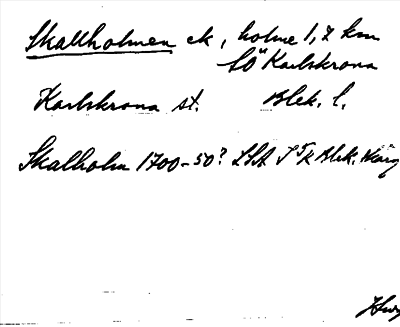 Skallholmen ek, holme 1,7 km
SÖ Karlskrona
Karlskrona st. Blek. l.
Skalholm 1700-50? LSA Blek.